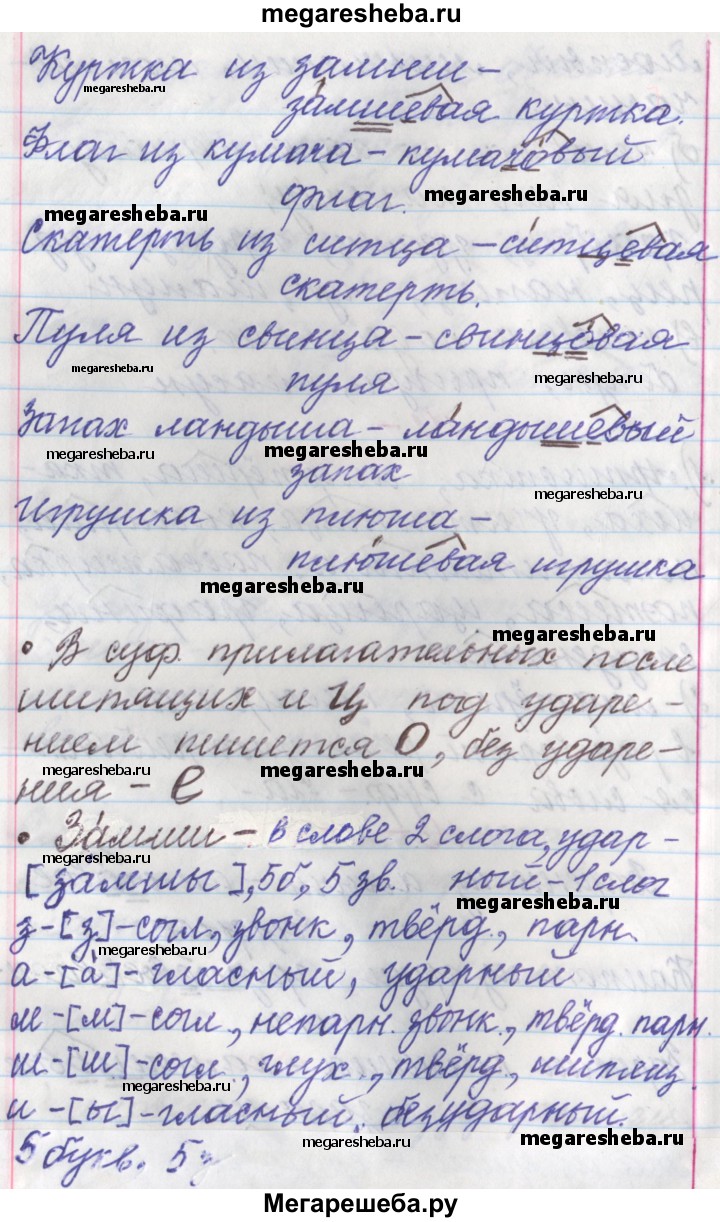 megaresheba.ru
Куртка из замши –
megaresheba.ru
за́мшевая куртка.
Флаг из кумача – кумачо́вый
megaresheba.ru
флаг.
megaresheba.ru
Скатерть из ситца – си́тцевая
скатерть.
Пуля из свинца – свинцо́вая
megaresheba.ru
пуля
megaresheba.ru
Запах ландыша – ла́ндышевый
megaresheba.ru
megaresheba.ru
запах
megaresheba.ru
Игрушка из плюша –
плю́шевая игрушка
megaresheba.ru
megaresheba.ru
• В суф. прилагательных после
шипящих и Ц под ударе-
нием пишется О, без ударе-
megaresheba.ru
megaresheba.ru
ния – е
• За́мши – в слове 2 слога, удар-
megaresheba.ru
[замшы], 5б, 5 зв. ный – 1 слог
megaresheba.ru
з – [з] – согл, звонк, твёрд., парн.
megaresheba.ru
а – [а́] – гласный, ударный
м – [м] – согл., непарн. звонк., твёрд. парн.
ш – [ш] – согл., глух., твёрд., шипящ.
megaresheba.ru
и – [ы] – гласный, безударный.
megaresheba.ru
megaresheba.ru
5 букв, 5 з
Мегарешеба.ру